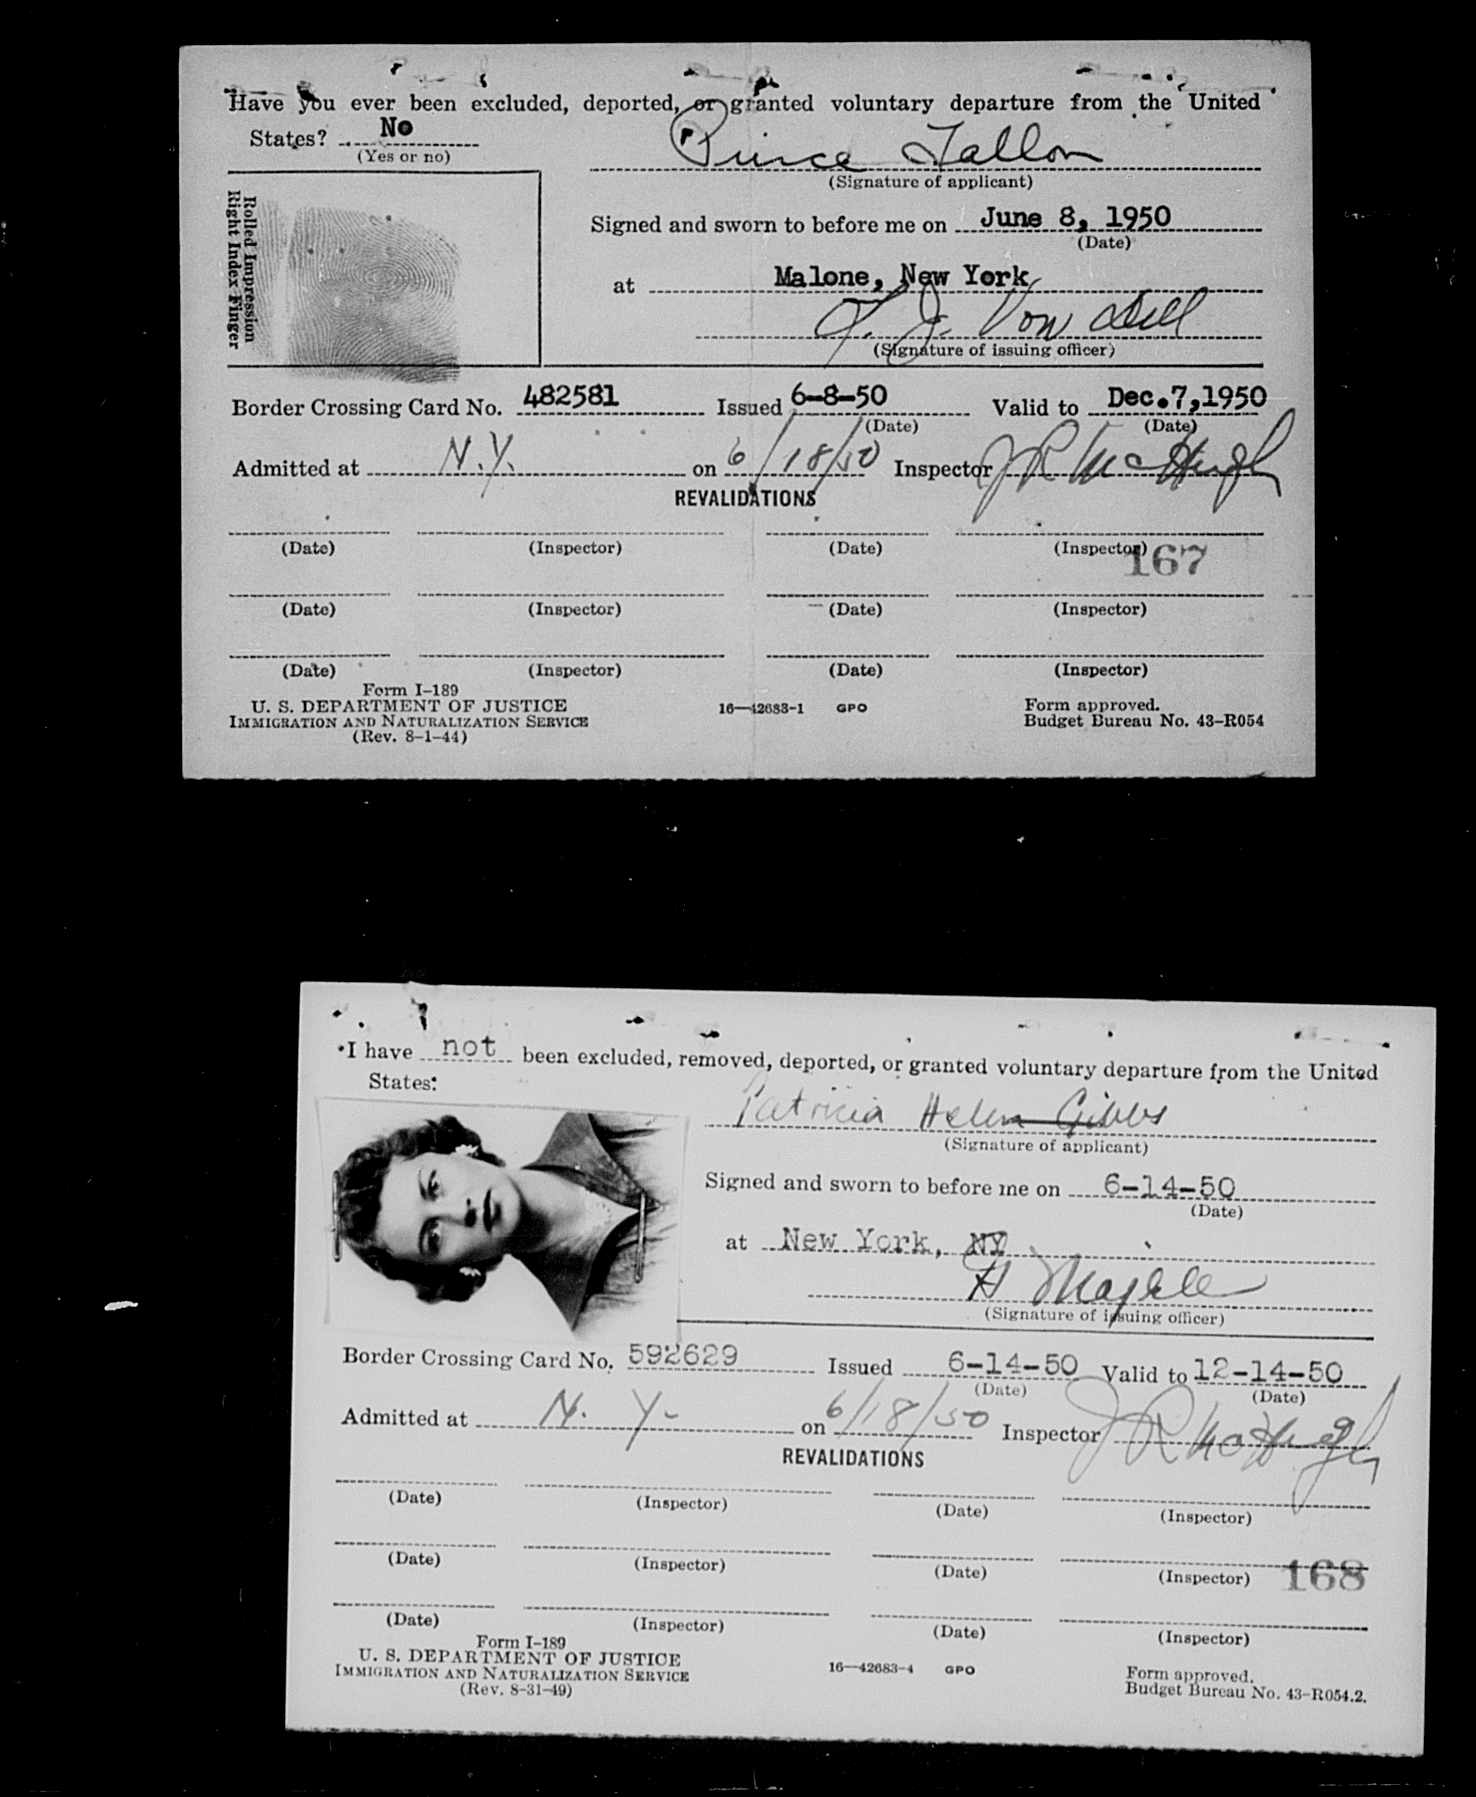 Have you ever been excluded, deported, or granted voluntary departure from the United
States? No
(Yes or no)
Pierce Fallon
(Signature of applicant)
Rolled Impression
Right Index Finger
Signed and sworn to before me on June 8, 1950
(Date)
at Malone, New York
(Signature of issuing officer)
Border Crossing Card No. 482581 Issued 6-8-50 Valid to Dec.7,1950
(Date) (Date)
Admitted at N.Y. on 6/18/50 Inspector J R McHugh
REVALIDATIONS
(Date) (Inspector) (Date) (Inspector)
167
(Date) (Inspector) (Date) (Inspector)
(Date) (Inspector) (Date) (Inspector)
Form I-189
U. S. DEPARTMENT OF JUSTICE 16—42683-1 GPO Form approved.
IMMIGRATION AND NATURALIZATION SERVICE Budget Bureau No. 43-R054
(Rev. 8-1-44)
I have not been excluded, removed, deported, or granted voluntary departure from the United
States:
Patricia Helen Gibbs
(Signature of applicant)
Signed and sworn to before me on 6-14-50
(Date)
at New York, NY
(Signature of issuing officer)
Border Crossing Card No. 592629 Issued 6-14-50 Valid to 12-14-50
(Date) (Date)
Admitted at N. Y. on 6/18/50 Inspector J R McHugh
REVALIDATIONS
(Date) (Inspector) (Date) (Inspector)
(Date) (Inspector) (Date) (Inspector) 168
(Date) (Inspector) (Date) (Inspector)
Form I-189
U. S. DEPARTMENT OF JUSTICE 16—42683-4 GPO Form approved.
IMMIGRATION AND NATURALIZATION SERVICE Budget Bureau No. 43-R054.2.
(Rev. 8-31-49)